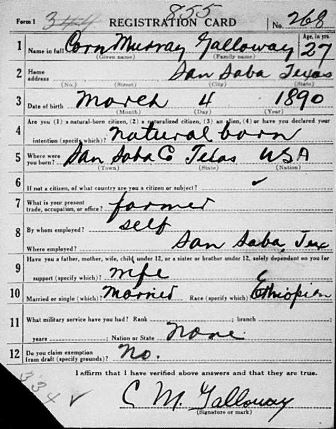 Form 1 344 855
REGISTRATION CARD No. 268
1 Name in full Corn Murray Galloway Age, in yrs. 27
(Given name) (Family name)
2 Home address San Saba Texas
(No.) (Street) (City) (State)
3 Date of birth March 4 1890
(Month) (Day) (Year)
4 Are you (1) a natural-born citizen, (2) a naturalized citizen, (3) an alien, (4) or have you declared your
intention (specify which)? natural born
5 Where were you born? San Saba Co Texas USA
(Town) (State) (Nation)
6 If not a citizen, of what country are you a citizen or subject?
7 What is your present trade, occupation, or office? farmer
8 By whom employed? self
Where employed? San Saba, Tex
9 Have you a father, mother, wife, child under 12, or a sister or brother under 12, solely dependent on you for
support (specify which)? wife
10 Married or single (which)? Married Race (specify which)? Ethiopien
11 What military service have you had? Rank ; branch
years ; Nation or State None
12 Do you claim exemption from draft (specify grounds)? No.
I affirm that I have verified above answers and that they are true.
334
C M. Galloway
(Signature or mark)